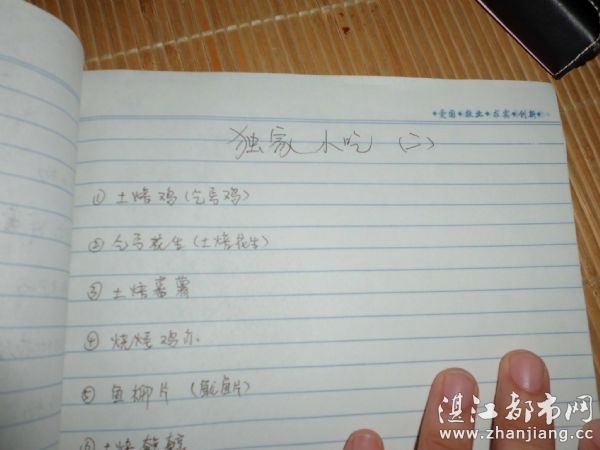 •爱国•敬业•求实•创新•
独家小吃 (二)
① 土焙鸡 (乞丐鸡)
② 乞丐花生 (土焙花生)
③ 土焙番薯
④ 烧焙鸡
⑤ 鱼柳片 (鱿鱼片)
⑥ 土焙
湛江都市网
www.zhanjiang.cc